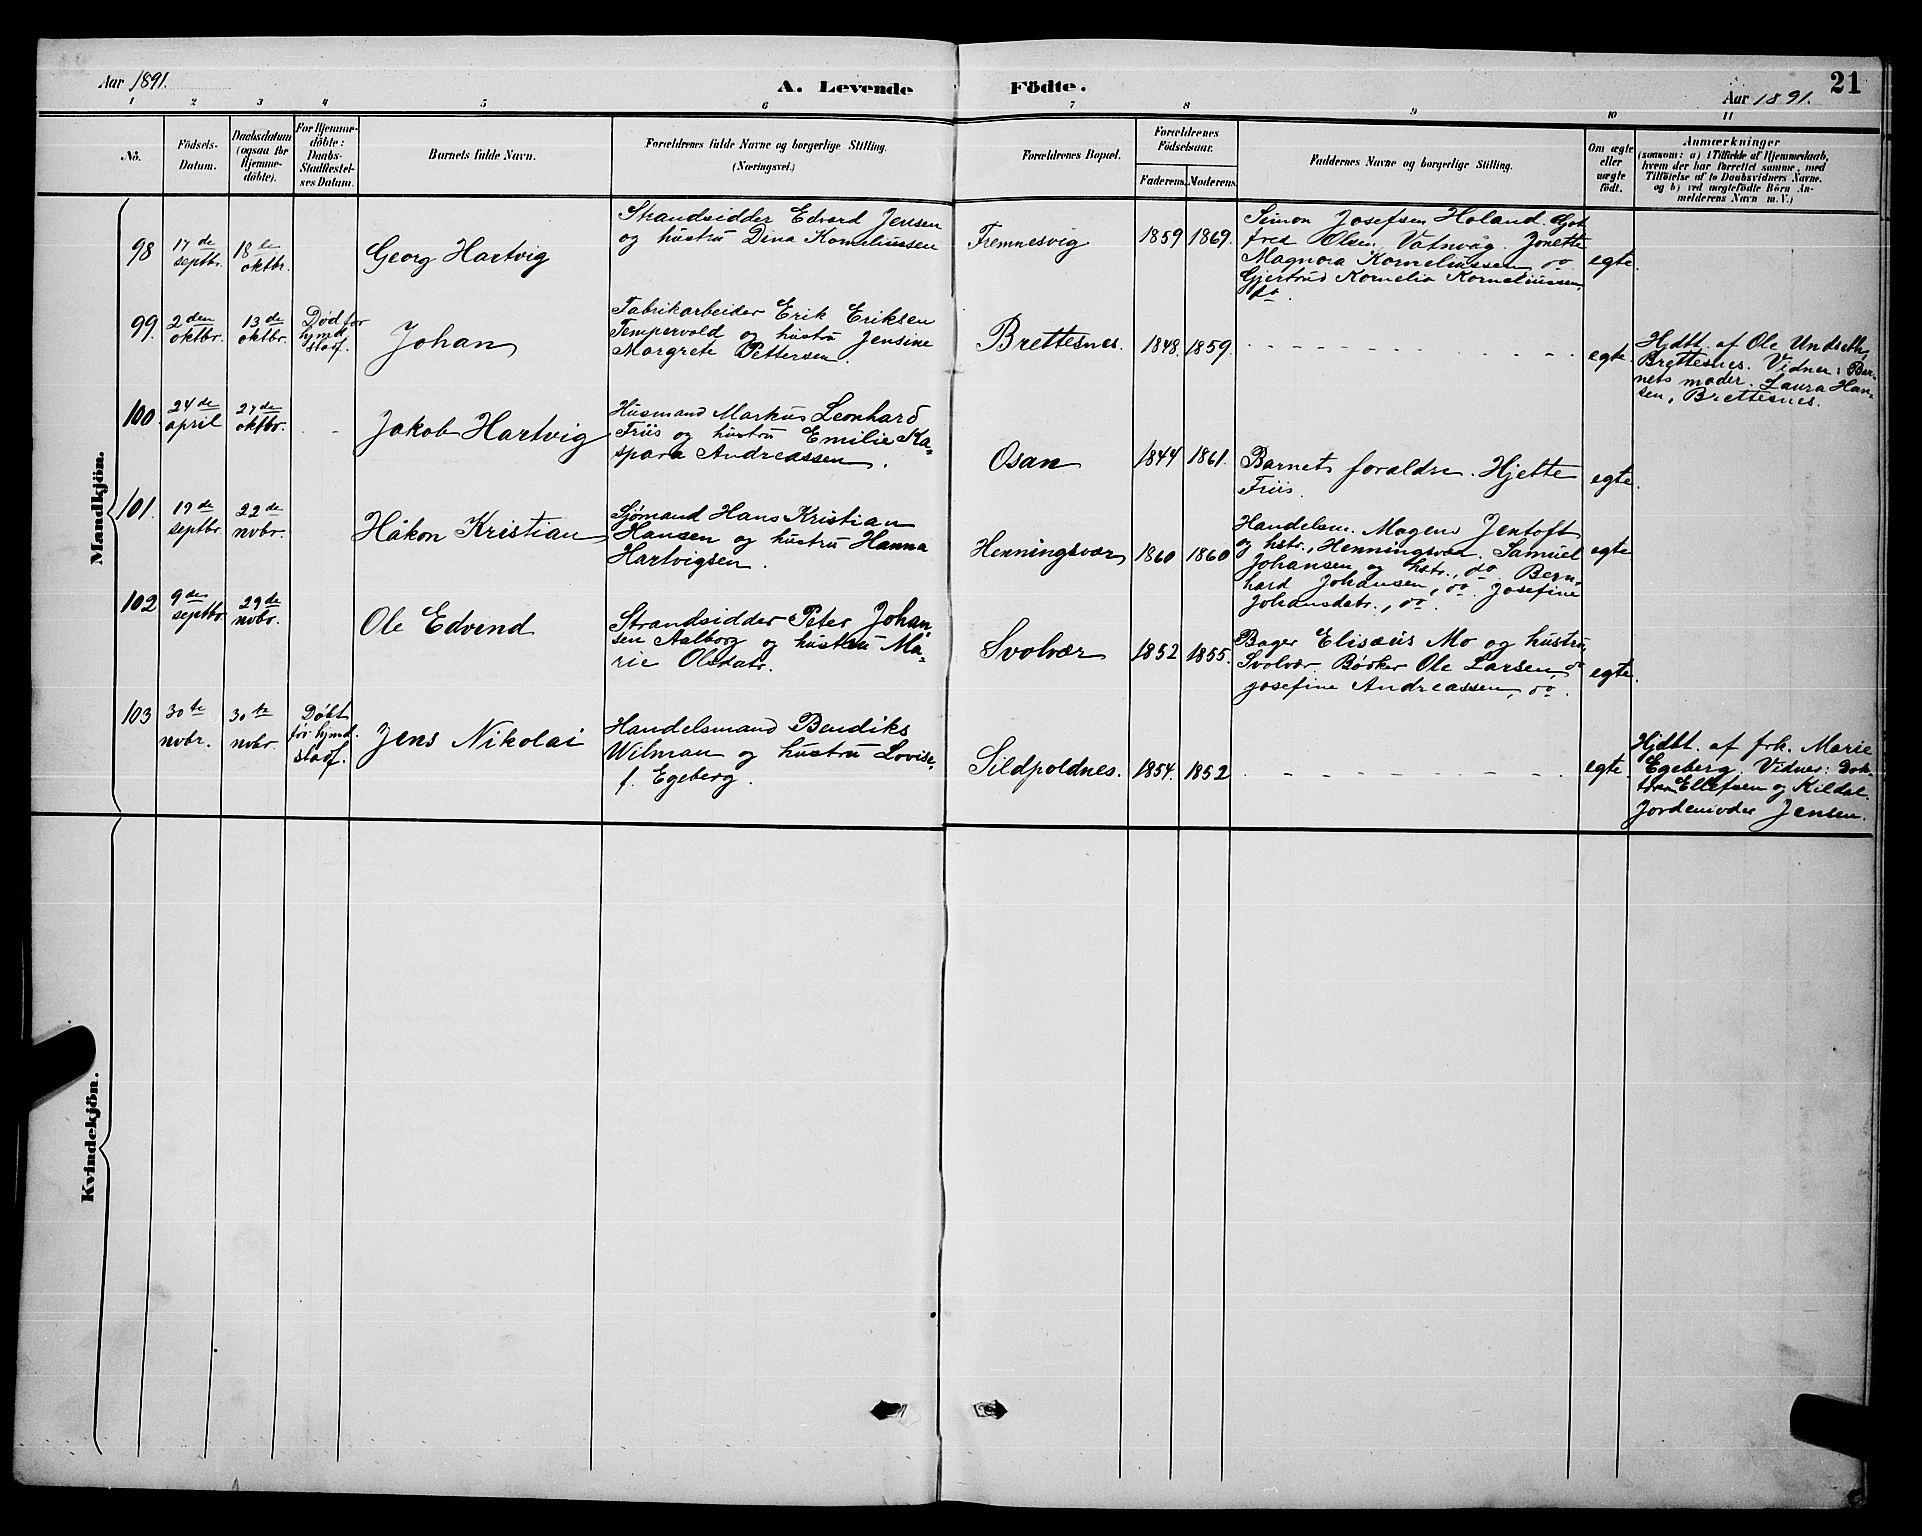 Aar 1891.
A. Levende Födte.
Aar 1891.
21
1 2 3 4 5 6 7 8 9 10 11
No.
Födsels-
Datum.
Daabsdatum
(ogsaa for
Hjemme-
döbte).
For Hjemme-
döbte:
Daabs-
Stadfæstel-
ses Datum.
Barnets fulde Navn.
Forældrenes fulde Navne og borgerlige Stilling.
(Næringsvei.)
Forældrenes Bopæl.
Forældrenes
Födselsaar.
Faderens. Moderens.
Faddernes Navne og borgerlige Stilling.
Om ægte
eller
uægte
födt.
Anmærkninger
(saasom: a) i Tilfælde af Hjemmedaab,
hvem der har forrettet samme, med
Tilföielse af to Daabsvidners Navne,
og b) ved uægtefödte Börn An-
melderens Navn m. V.)
Mandkjön.
98
17de
septbr.
18de
oktbr.
Georg Hartvig
Strandsidder Edvard Jensen
og hustru Dina Korneliussen
Fremnesvig
1859 1869.
Simon Josefsen Holand. Got
fred Olsen, Vatnvåg. Jonette
Magnora Korneliussen do
Gjertrud Kornelia Korneliussen,
do.
egte.
99.
2den
oktbr.
13de
oktbr.
Død før
hjmd.
stadf.
Johan
Fabrikarbeider Erik Eriksen
Tempervold og hustru Jensine
Margrete Pettersen.
Brettesnes.
1848. 1859.
egte.
Hjdbt. af Ole Undseth,
Brettesnes. Vidner: Bar-
nets moder. Laura Han-
sen, Brettesnes.
100.
24de
april
27de
oktbr.
Jakob Hartvig
Husmand Markus Leonhard
Friis og hustru Emilie Ka-
spara Andreassen.
Osan
1844 1861.
Barnets foraldre. Hjette
Friis.
egte.
101.
19de
septbr.
22de
novbr.
Håkon Kristian
Sjømand Hans Kristian
Hansen og hustru Hanna
Hartvigsen.
Henningsvær
1860 1860
Handelsm. Mogens Jentoft
og hstr., Henningsvær. Samuel
Johansen og hstr., do. Bern-
hard Johansen, do. Josefine
Johansdatr., do.
egte.
102
9de
septbr.
29de
novbr.
Ole Edvend
Strandsidder Peter Johan-
sen Aalborg og hustru Ma-
rie Olsdatr.
Svolvær
1852 1855.
Bager Elisæus Mo og hustru,
Svolvær. Bødker Ole Larsen, do
Josefine Andreassen, do.
egte.
103
30te
novbr.
30te
novbr.
Døbt
før hjmd.
stadf.
Jens Nikolai
Handelsmand Bendiks
Wilman og hustru Lovise,
f. Egeberg.
Sildpoldnes.
1854. 1852
egte.
Hjdbt. af frk. Marie
Egeberg. Vidner: Dok-
Ellefsen og Kildal.
Jordemoder Jensen.
Kvindekjön.